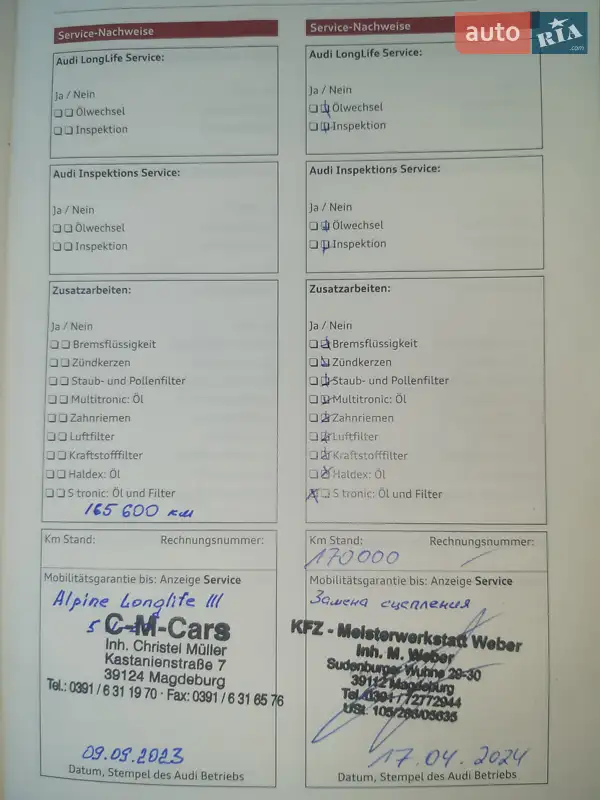 auto RIA .com
Service-Nachweise
Audi LongLife Service:
Ja / Nein
Ölwechsel
Inspektion
Audi Inspektions Service:
Ja / Nein
Ölwechsel
Inspektion
Zusatzarbeiten:
Ja / Nein
Bremsflüssigkeit
Zündkerzen
Staub- und Pollenfilter
Multitronic: Öl
Zahnriemen
Luftfilter
Kraftstofffilter
Haldex: Öl
S tronic: Öl und Filter
165 600 км
Km Stand: Rechnungsnummer:
Mobilitätsgarantie bis: Anzeige Service
Alpine Longlife III
5
C-M-Cars
Inh. Christel Müller
Kastanienstraße 7
39124 Magdeburg
Tel.: 0391 / 6 31 19 70 · Fax: 0391 / 6 31 65 76
09.09.2023
Datum, Stempel des Audi Betriebs
Service-Nachweise
Audi LongLife Service:
Ja / Nein
Ölwechsel
Inspektion
Audi Inspektions Service:
Ja / Nein
Ölwechsel
Inspektion
Zusatzarbeiten:
Ja / Nein
Bremsflüssigkeit
Zündkerzen
Staub- und Pollenfilter
Multitronic: Öl
Zahnriemen
Luftfilter
Kraftstofffilter
Haldex: Öl
S tronic: Öl und Filter
Km Stand: Rechnungsnummer:
170000
Mobilitätsgarantie bis: Anzeige Service
Замена сцепления
KFZ - Meisterwerkstatt Weber
Inh. M. Weber
Sudenburger Wuhne 29-30
39112 Magdeburg
Tel. 0391 / 72772944
USt. 105/286/05635
17.04.2024
Datum, Stempel des Audi Betriebs